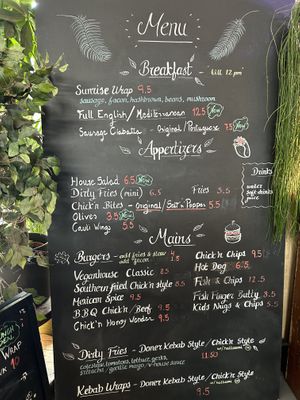 Menu
Breakfast till 12 pm
Sunrise Wrap 9.5
sausage, facon, hashbrown, beans, mushroom
Full English / Mediterranean 12.5 New
Sausage Ciabatta - Original / Portuguese 7.5 New
Appertizers
House Salad 6.5 New
Dirty Fries (mini) 6.5 Fries 5.5
Chick'n Bites - Original / Salt n Pepper 5.5
Olives 3.5 New
Cauli Wings 5.5
Drinks
water
soft drinks
juice
Mains
Burgers - add fries & slaw 4.5
add facon
Veganhouse Classic
Southern fried Chick'n style 8.5
Mexican Spice 9.5
B.B.Q Chick'n / Beef 9.5
Chick'n Honey Wonder 9.5
Chick'n Chips 9.5
Hot Dog 6.5
Fish & Chips 12.5
Fish Finger Butty 8.5
Kids Nugs & Chips 5.5
Dirty Fries - Doner Kebab Style / Chick'n Style
coleslaw, tomatoes, lettuce, gerks, 11.50
sriracha / garlic mayo / v-house sauce
Kebab Wraps - Doner Kebab Style / Chick'n Style
9.5
WRAP
10